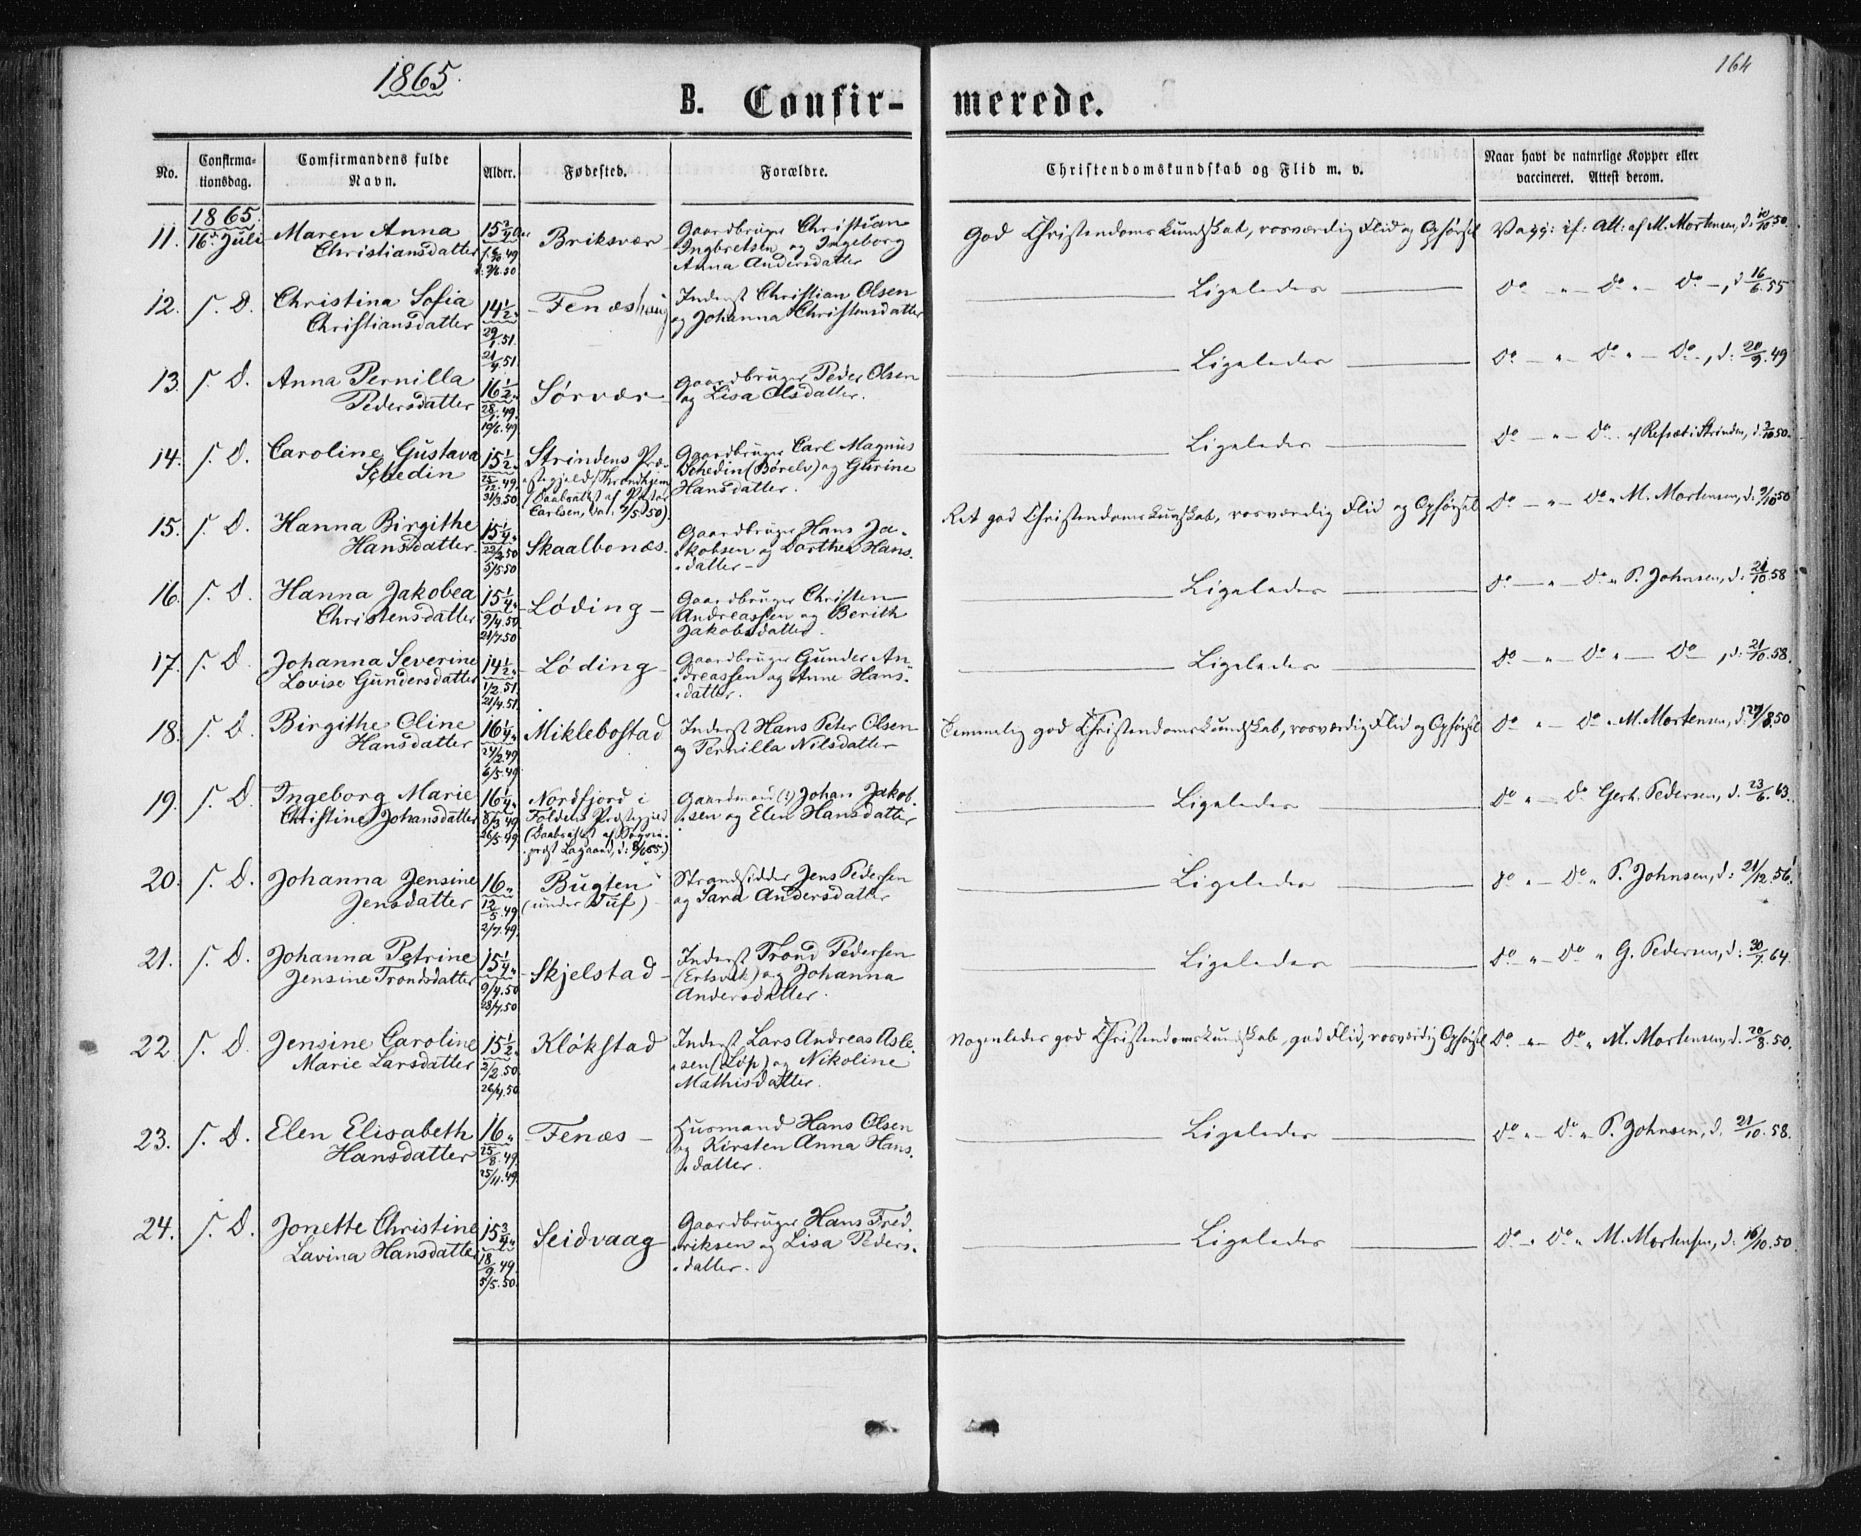 1865.
164
B. Confir-merede.
No.
Confirma-
tionsdag.
Comfirmandens fulde
Navn.
Alder.
Fødested.
Forældre.
Christendomskundskab og Flid m. v.
Naar havt de naturlige Kopper eller
vaccineret. Attest derom.
1865.
11. 16de Juli Maren Anna
Christiansdatter
Briksvær
Gaardbruger Christian
Ingbretsen og Ingeborg
Anna Andersdatter
God Christendomskundskab, rosværdig Flid og Opførsel
Vacc: if: Att: af M. Mortensen, d: 10/10.50.
12. s. D. Christina Sofia
Christiansdatter
14 1/2
29/1.51.
21/4.51
Fenæshaug
Inderst Christian Olsen
og Johanna Christensdatter
Ligeledes
Do - " - Do " - Do -, d 16/6.55
13. s. D. Anna Pernilla
Pedersdatter
16 1/2
28/1.49.
19/6.49
Sørvær
Gaardbruger Peder Olsen
og Lisa Olsdatter.
Ligeledes
Do - " - Do " - Do -, d: 20/9.49
14. s. D. Caroline Gustava
Schedin
15 1/2
25/12.49.
31/3.50
Strindens Præ-
stegjeld/Throndhjem
(Daabsattest af Pastor
Carlsen, dat. 2/5.50).
Gaardbruger Carl Magnus
Schedin (Børelv) og Gurine
Hansdatter.
Ligeledes
Do - " - Do af Refsæt i Strinden, d: 2/10.50.
15. s. D. Hanna Birgithe
Hansdatter
15 1/4
22/2.50
5/5.50
Skaalbonæs.
Gaardbruger Hans Ja-
kobsen og Dorthea Hans-
datter -
Ret god Christendomskundskab, rosværdig Flid og Opførsel
Do - " - Do " M. Mortensen, d: 9/10.50
16. s. D. Hanna Jakobea
Christensdatter
15 1/4
9/4.50.
21/7.50
Løding
Gaardbruger Christen
Andreassen og Berith
Jakobsdatter.
Ligeledes
Do - " - Do " P. Johnsen, d: 21/10.58
17. s. D. Johanna Severine
Lovise Gundersdatter
14 1/2
1/2.51.
21/4.51.
Løding
Gaardbruger Gunder An-
dreassen og Anne Hans-
datter.
Ligeledes
Do - " - Do " - Do -, d: 21/10.58.
18. s. D. Birgithe Oline
Hansdatter
16 1/4
24/2.49
6/5.49
Miklebostad
Inderst Hans Peter Olsen
og Pernilla Nilsdatter
Temmelig god Christendomskundskab, rosværdig Flid og Opførsel
Do " - Do " M. Mortensen, d: 27/8.50
19. s. D. Ingeborg Marie
Christine Johansdatter
16 1/4
8/3.49
26/5.49
Nordfjord i
Foldens Præstegjeld
(Daabsattest af Sogne-
præst Lagaard, d:
Gaardmand (:) Johan Jakob-
sen og Elen Hansdatter
Ligeledes
Do " - Do Gerh. Pedersen, d. 23/6.63.
20. s. D. Johanna Jensine
Jensdatter
16
12/5.49
2/7.49.
Bugten
(under Tuf)
Strandsidder Jens Pedersen
og Sara Andersdatter
Ligeledes
Do " - Do " P. Johnsen, d: 21/12.56.
21. s. D. Johanna Petrine
Jensine Trondsdatter
15 1/4
9/4.50
28/7.50
Skjelstad
Inderst Trond Pedersen
(Ertsvik) og Johanna
Andersdatter.
Ligeledes
Do " - Do " G. Pedersen, d: 30/7.64.
22 s. D. Jensine Caroline
Marie Larsdatter
15 1/2
2/2.50.
26/4.50
Kløkstad
Inderst Lars Andreas Asle-
sen (Løp) og Nikoline
Mathisdatter.
Nogenledes god Christendomskundskab, god Flid, rosværdig Opførsel
Do " - Do " M. Mortensen, d. 20/8.50.
23. s. D. Elen Elisabeth
Hansdatter
16
25/8.49.
25/11.49
Fenæs
Husmand Hans Olsen
og Kirsten Anna Hans-
datter.
Ligeledes
Do " - Do " P. Johnsen, d. 21/10.58.
24. s. D. Jonette Christine
Lavina Hansdatter
15 3/4
18/9.49.
5/5.50.
Seidvaag
Gaardbruger Hans Fred-
riksen og Lisa Peders-
datter.
Ligeledes
Do " Do " M. Mortensen, d. 16/10.50.